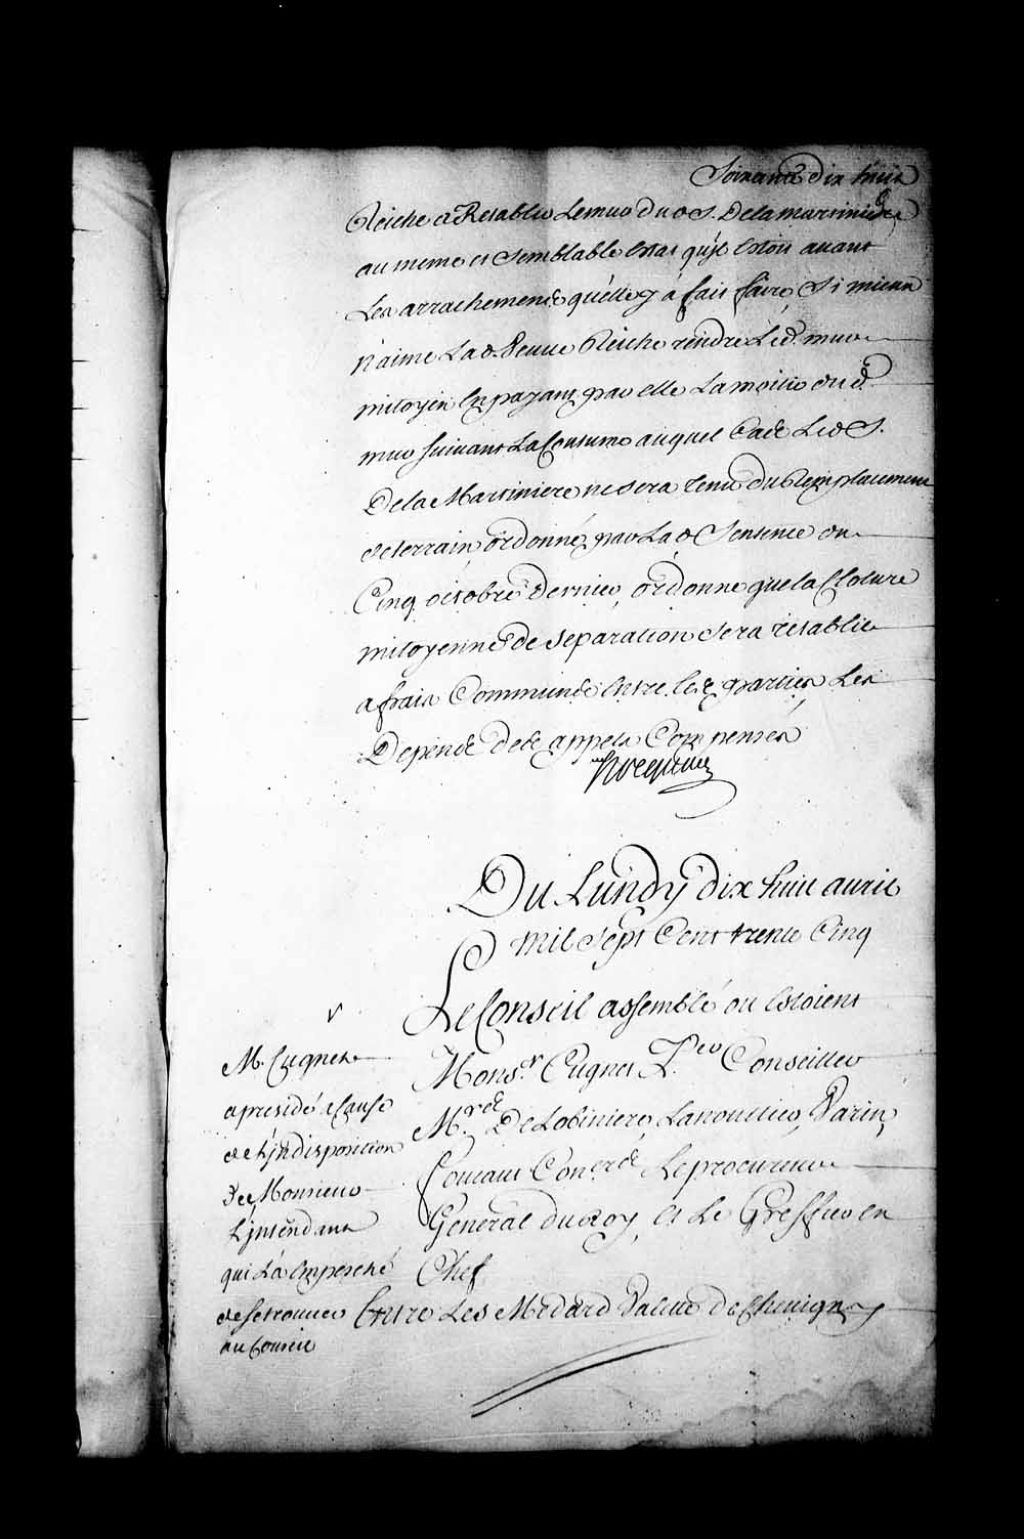 Soixante dix huit
Reiche a Retablir Le mur dud S. De la martiniere
au meme et Semblable Estat qu'il Estoit avant
Les arrachements qu'elle y a fait faire, Si mieux
n'aime Lad. Veuve Reiche rendre Led. mur
mitoyen En payant par elle La moitié dud
mur suivant La Coutume auquel Cas Led S.
De la Martiniere ne sera tenu du Remplacement
de terrain ordonné par Lad Sentence du
Cinq octobre Dernier, ordonne que la Cloture
mitoyenne de Separation Sera retablie
a frais Communs Entre les parties Les
Depens des appels Compensés
Hocquart
Du Lundy dix huit avril
mil Sept Cent trente Cinq
Le Conseil assemblé ou Estoient
Mons.r Cugnet P.er Conseiller
M.rs De Lotbiniere, Lanouillier, Varin,
foucault Con.ers Le procureur
General du Roy, et Le Greffier en
Chef
M. Cugnet
a presidé a Cause
de L'jndisposition
de Monsieur
L'jntendant
qui L'a Empesché
de se trouver
au Conseil
Entre Les Medard Valette de Chevigny